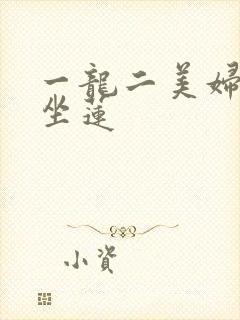 一龍二美婦
坐蓮
小資